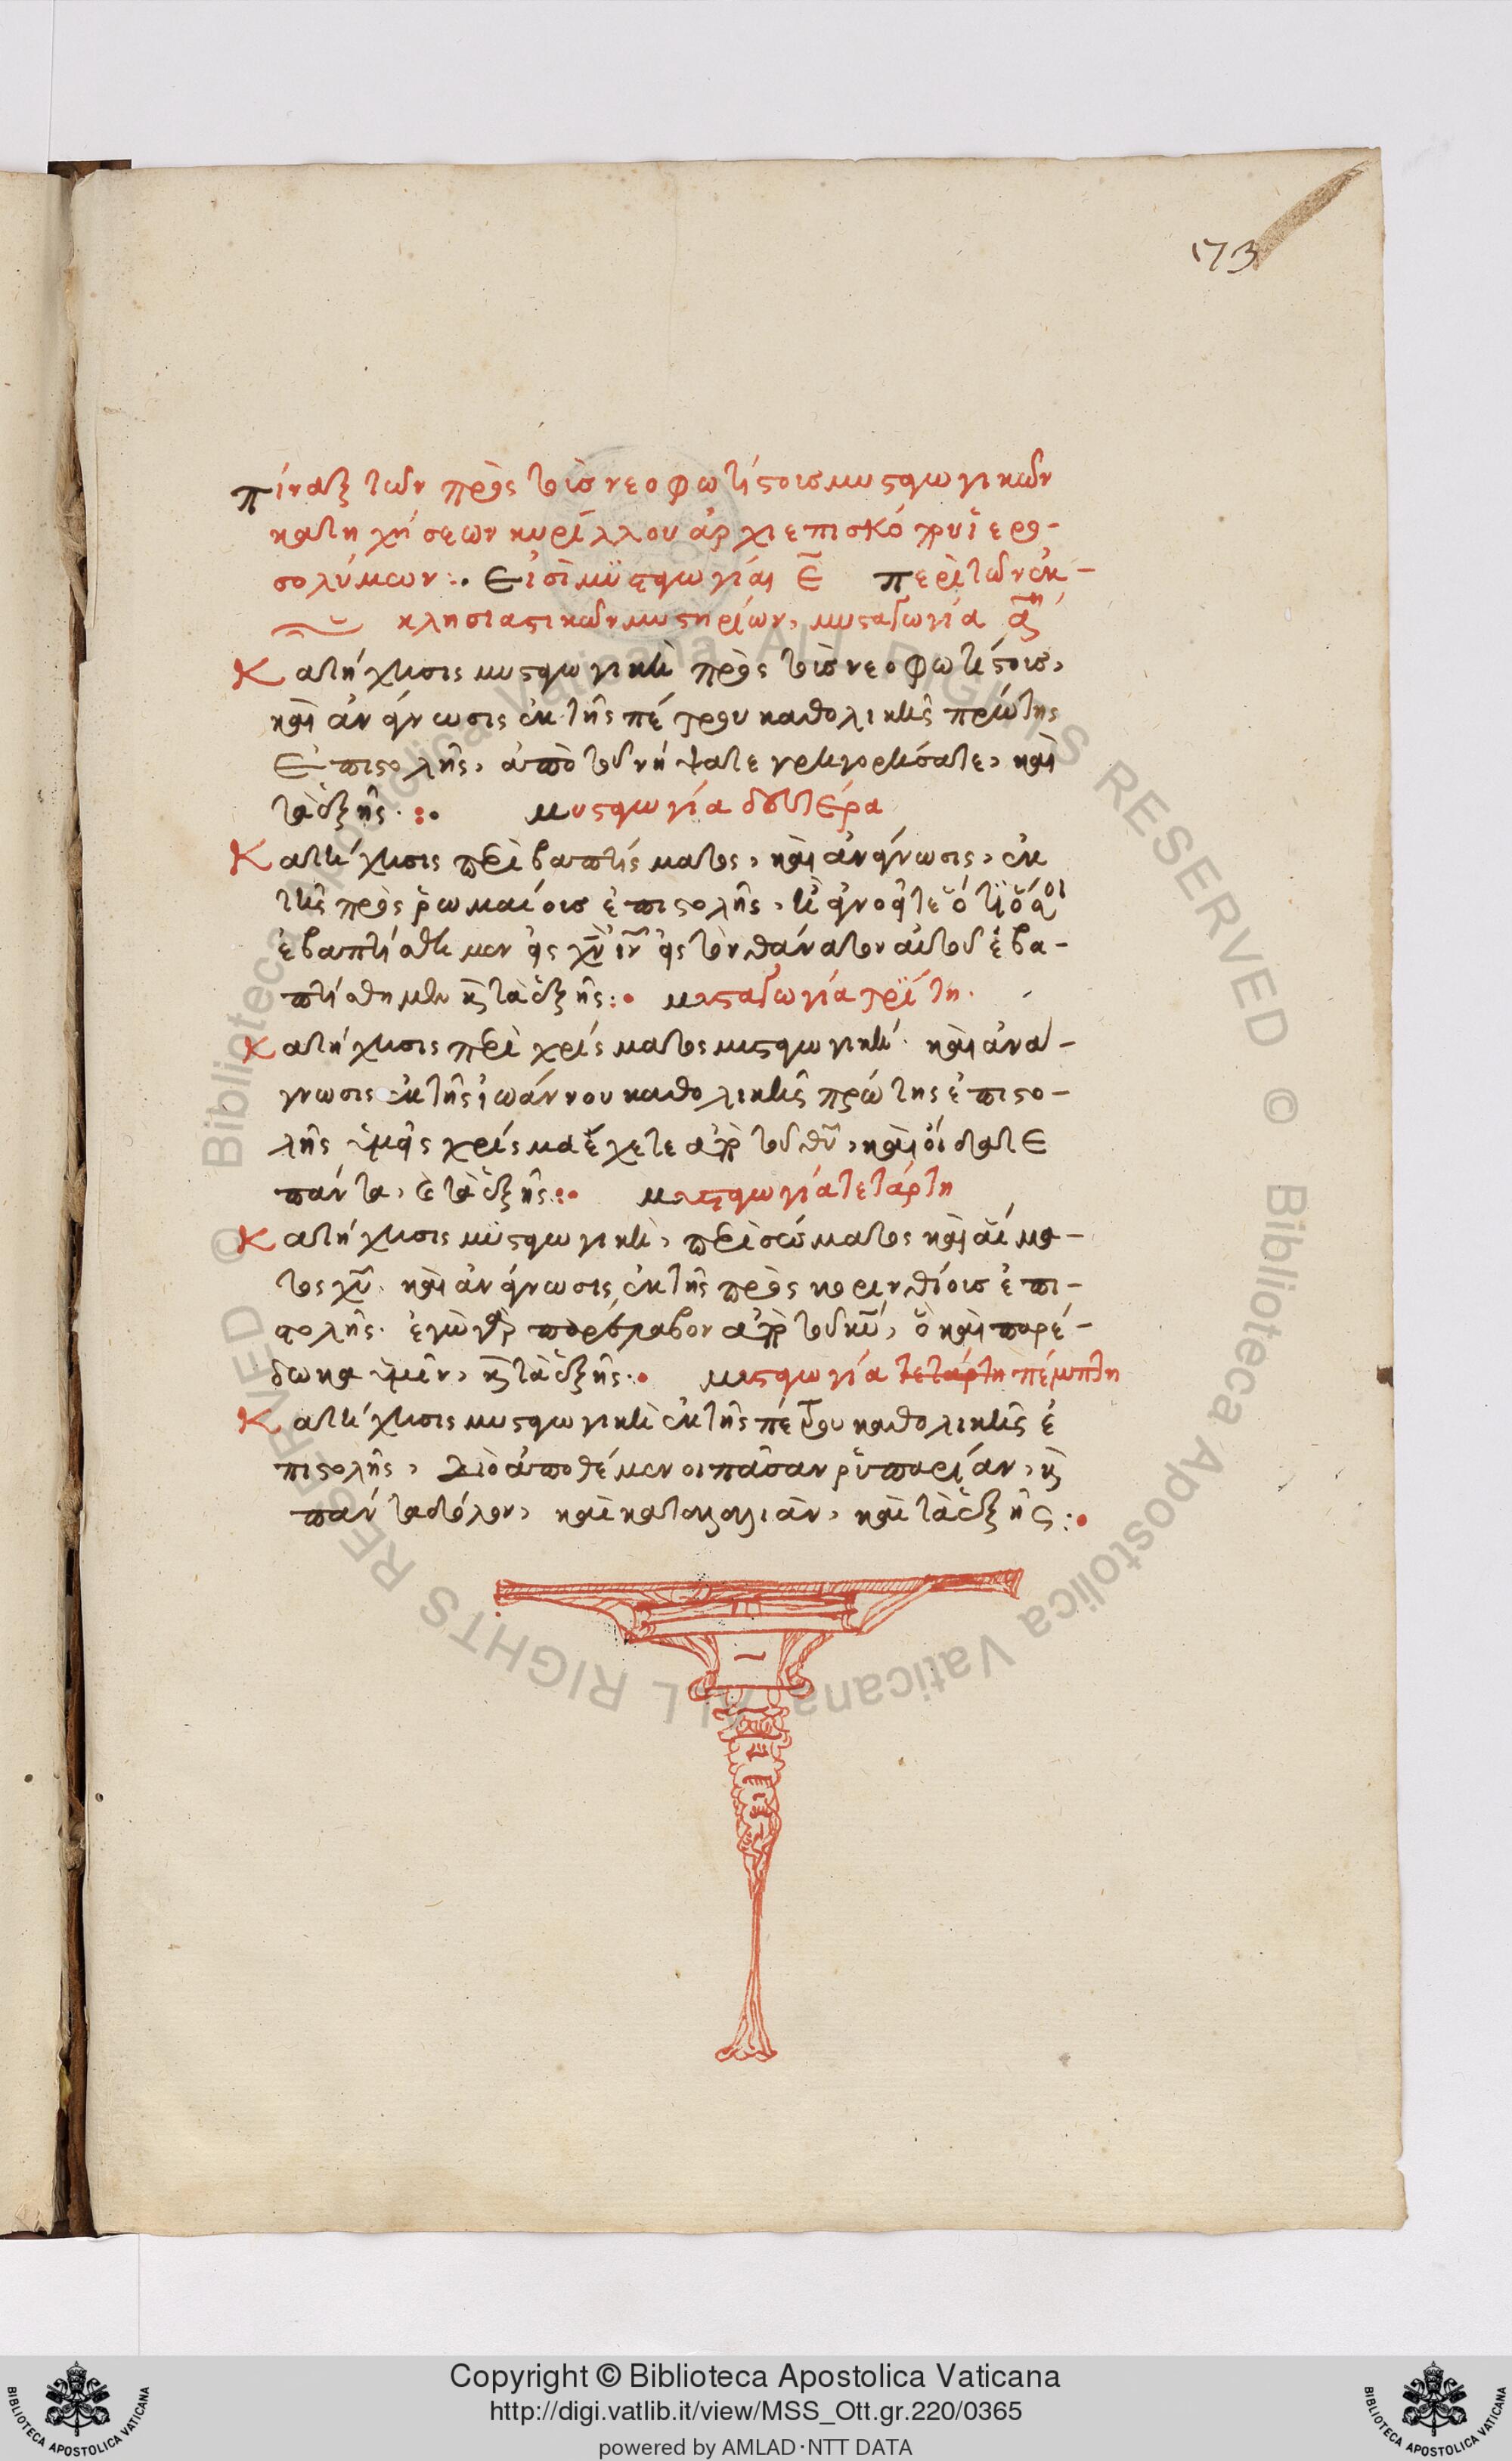 173
πίναξ τῶν πρὸς τοὺς νεοφωτίστους μυσταγωγικῶν
κατηχήσεων κυρίλλου ἀρχιεπισκόπου ἱερο-
σολύμων:. Εἰσὶ μϋσταγωγίαι ε̄ περὶ τῶν ἐκ-
κλησιαστικῶν μυστηρίων, μυσταγωγία ᾱη
Κατήχησις μυσταγωγικὴ πρὸς τοὺς νεοφωτίστους,
καὶ ἀνάγνωσις ἐκ τῆς πέτρου καθολικῆς πρώτης
Ἐπιστολῆς, ἀπὸ τοῦ νήψατε γρηγορήσατε, καὶ
τὰ ἑξῆς.:. μυσταγωγία δευτΕρα
Κατήχησις περὶ βαπτίσματος, καὶ ἀνάγνωσις, ἐκ
τῆς πρὸς ῥωμαίους ἐπιστολῆς, ἢ ἀγνοεῖτε ὅτι ὅσοι
ἐβαπτίσθημεν εἰς χν ιν εἰς τὸν θάνατον αὐτοῦ ἐβα-
πτίσθημεν κ τὰ ἑξῆς:. μυσταγωγία τρίτη.
Κατήχησις περὶ χρίσματος μυσταγωγική. καὶ ἀνά-
γνωσις ἐκ τῆς ἰωάννου καθολικῆς πρώτης ἐπιστο-
λῆς ὑμεῖς χρίσμα ἔχετε ἀπὸ τοῦ θυ, καὶ οἴδατε
πάντα, κ τὰ ἑξῆς:. μυσταγωγία τετάρτη
Κατήχησις μϋσταγωγικὴ, περὶ σώματος καὶ αἵμα-
τος χυ. καὶ ἀνάγνωσις, ἐκ τῆς πρὸς κορινθίους ἐπι-
στολῆς. ἐγὼ γὰρ παρέλαβον ἀπὸ τοῦ κυ, ὃ καὶ παρέ-
δωκα ὑμῖν, κ τὰ ἑξῆς:. μυσταγωγία τετάρτη πέμπτη
Κατήχησις μυσταγωγικὴ ἐκ τῆς πέτρου καθολικῆς ἐ
πιστολῆς, Διὸ ἀποθέμενοι πᾶσαν ῥυπαρίαν, κ
πάντα δόλον, καὶ καταλαλιὰν, καὶ τὰ ἑξῆς:.
© Biblioteca Apostolica Vaticana ALL RIGHTS RESERVED © Biblioteca Apostolica Vaticana ALL RIGHTS RESERVED
Copyright © Biblioteca Apostolica Vaticana
http://digi.vatlib.it/view/MSS_Ott.gr.220/0365
powered by AMLAD·NTT DATA
BIBLIOTECA APOSTOLICA VATICANA
BIBLIOTECA APOSTOLICA VATICANA